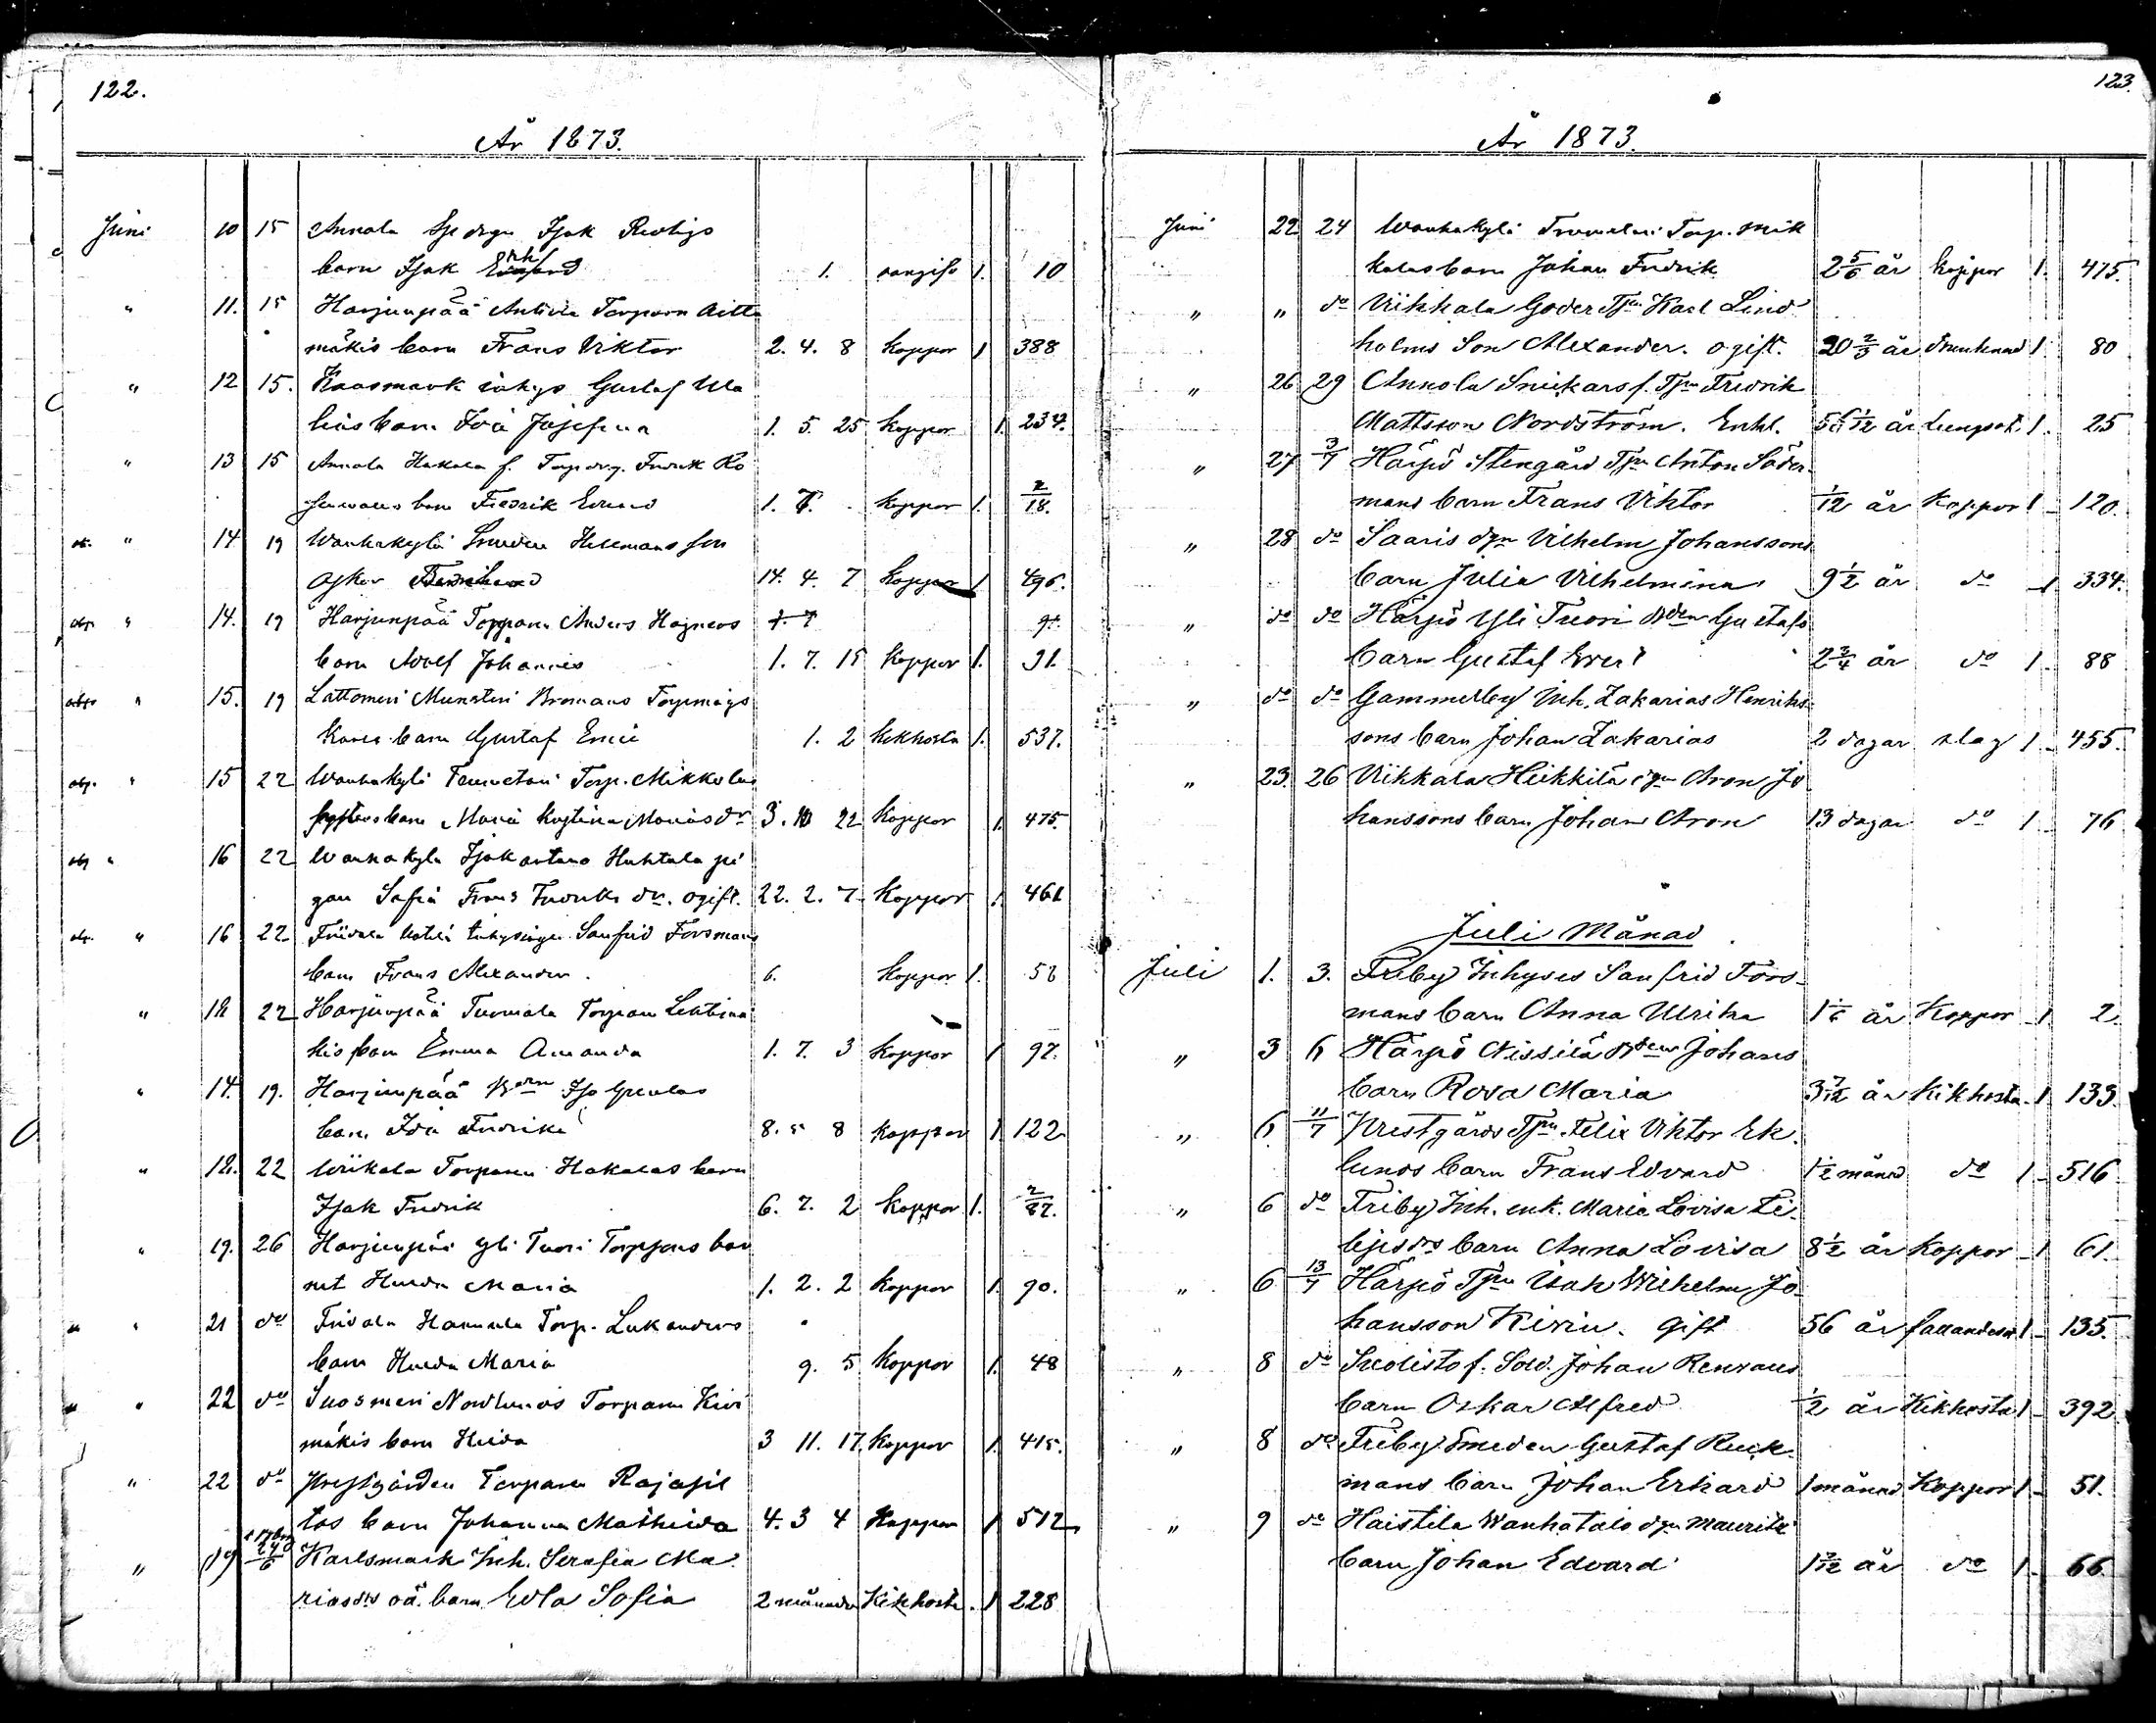 122.
År 1873.
Juni 10 15 Annala Isak
barn Isak 1. oangifv 1. 10
" 11. 15 Harjunpää Torparn Aitta
mäkis barn Frans Viktor 2. 4. 8 Koppor 1 388
" 12 15. Kaasmark inhys Gustaf Ula
barn Ida Josefina 1. 5. 25 Koppor 1. 234.
" 13 15 Annala Hakala f. Fredrik Ro
barn Fredrik 1. 7. Koppor 1. 2/18.
" 14 19 Wanhakylä Smeden Hellmans son
14. 4. 7 Koppor 1 496.
" 14. 19 Harjunpää Torparn Anders Hagners 1. 7 91.
barn Adolf Johannes 1. 7. 15 Koppor 1. 91.
" 15. 19 Lattomeri Munsteri Bromans
barn Gustaf Emil 1. 2 Kikhosta 1. 537.
" 15 22 Wanhakylä Torp. Mikkolas
barn Maria Kristina Mariasdr 3. 10 22 Koppor 1. 475.
" 16 22 Wanhakylä Isakantano Huhtala pi
gan Sofia Frans Fredriks dr. ogift. 22. 2. 7 Koppor 1. 461
" 16 22 Friidala Sanfrid Forsmans
barn Frans Alexander. 6. Koppor 1. 58
" 18 22 Harjunpää Tuomala Torparn
kis barn Emma Amanda 1. 7. 3 Koppor 1 97.
" 14. 19. Harjunpää
barn Ida Fredrika 8. 5 8 Koppor 1 122
" 18. 22 Wiikala Torparn Hakalas barn
Isak Fredrik 6. 7. 2 Koppor 1. 2/87.
" 19. 26 Harjunpää Yli Tuori Torppans bar
net Hulda Maria 1. 2. 2 Koppor 1. 90.
" 21 do Fridala Hannula Torp. Lukanders
barn Hulda Maria 9. 5 Koppor 1. 48
" 22 do Suosmeri Nordlunds Torparn Kivi
mäkis barn Hilda 3 11. 17. Koppor 1. 415.
" 22 do Prestgården Torparn Rajasil
tas barn Johanna Mathilda 4. 3 4 Koppor 1 512
" 19 Karlsmark Inh. Serafia Ma
riasdrs oä. barn Edla Sofia 2 månader Kikhosta. 1 228
123.
År 1873.
Juni 22 24 Wanhakylä Torp. Mik
kolas barn Johan Fredrik 2 5/6 år Koppor 1. 475.
" " do Viikkala Goder Tpn Karl Lind
holms Son Alexander. ogift. 20 2/3 år drunknad 1. 80
" 26 29 Annola Snickars f. Tpn Fredrik
Mattsson Nordström. Enkl. 56 1/12 år Lungsot. 1. 25
" 27 3/7 Härpö Stengård Tpn Anton Söder
mans barn Frans Viktor 1/12 år Koppor 1 120.
" 28 do Saaris dgn Vilhelm Johanssons
barn Julia Vilhelmina 9 1/2 år do 1 334.
" do do Härpö Yli Tuori Bden Gustafs
barn Gustaf Evert 2 3/4 år do 1 88
" do do Gammelby Inh. Zakarias Henriks
sons barn Johan Zakarias 2 dagar slag 1 455.
" 23. 26 Viikkala Heikkilä dgn Aron Jo
hanssons barn Johan Aron 13 dagar do 1 76
Juli Månad
Juli 1. 3. Friby Inhyses Sanfrid Fors
mans barn Anna Ulrika 1 1/6 år Koppor 1. 2.
" 3 6 Härpö Nissilä Bdens Johans
barn Rosa Maria 3 7/12 år Kikhosta 1. 133.
" 6 11/7 Prestgårds Tpn Felix Viktor Ek
lunds barn Frans Edvard 1 1/2 månad do 1 516
" 6 do Friby Inh. enk. Maria Lovisa
barn Anna Lovisa 8 1/2 år Koppor 1 61.
" 6 13/7 Härpö Tpn Isak Wilhelm Jo
hansson Kivin. gift 56 år fallandes. 1 135.
" 8 do Suolisto f. Sold. Johan Renvalls
barn Oskar Alfred 1/2 år Kikhosta 1 392
" 8 do Friby Smeden Gustaf Ruck
mans barn Johan Erhard 1 månad Koppor 1 51.
" 9 do Haistila Wanhatalo dgn Mauritz
barn Johan Edvard 1 7/12 år do 1 66